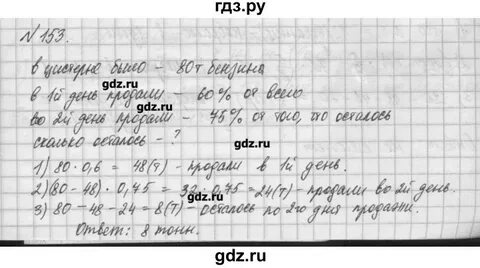 гдз.ру
№ 153.
В цистерне было – 80т бензина
gdz.ru
в 1й день продали – 60% от всего
gdz.ru
во 2й день продали – 75% от того, что осталось
сколько осталось – ?
gdz.ru
1) 80 · 0,6 = 48(т) – продали в 1й день.
2) (80 – 48) · 0,75 = 32 · 0,75 = 24(т) – продали во 2й день.
3) 80 – 48 – 24 = 8(т) – осталось после 2го дня продажи.
Ответ: 8 тонн.
gdz.ru
gdz.ru